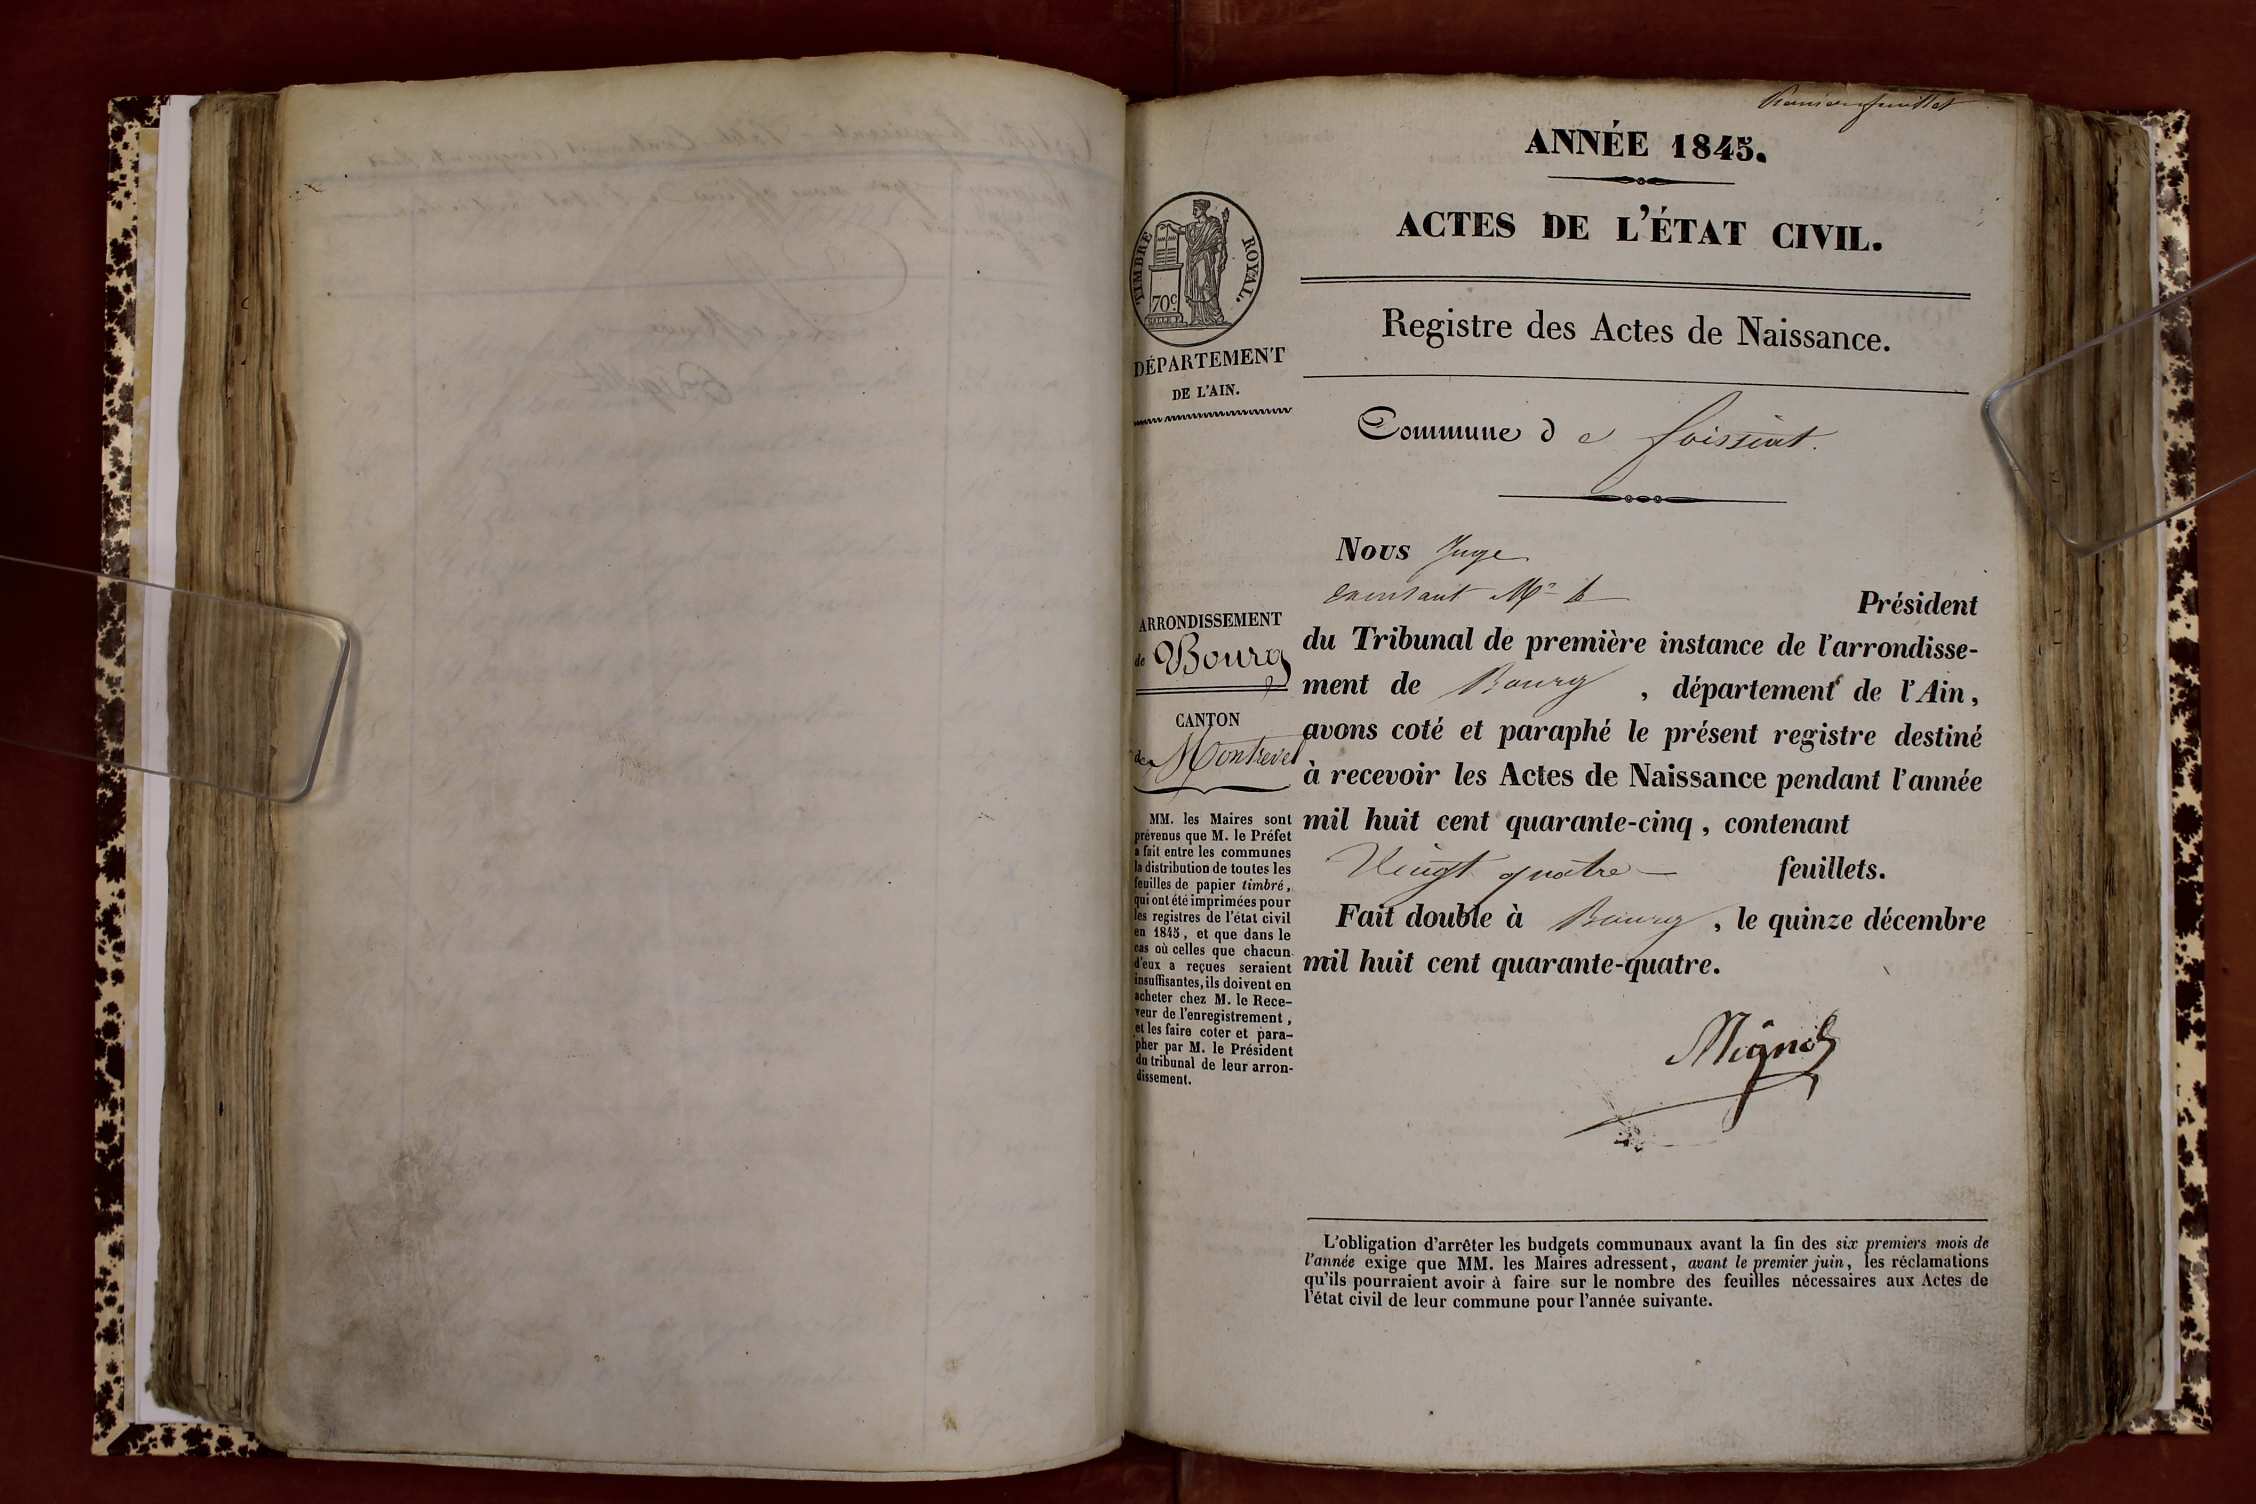 Premier feuillet
ANNÉE 1845.
ACTES DE L'ÉTAT CIVIL.
Registre des Actes de Naissance.
TIMBRE ROYAL.
70c
DÉPARTEMENT
DE L'AIN.
Commune de foissiat.
ARRONDISSEMENT
de Bourg
CANTON
de Montrevel
MM. les Maires sont
prévenus que M. le Préfet
a fait entre les communes
la distribution de toutes les
feuilles de papier timbré,
qui ont été imprimées pour
les registres de l'état civil
en 1845, et que dans le
cas où celles que chacun
d'eux a reçues seraient
insuffisantes, ils doivent en
acheter chez M. le Rece-
veur de l'enregistrement,
et les faire coter et para-
pher par M. le Président
du tribunal de leur arron-
dissement.
Nous Juge
Mr le Président
du Tribunal de première instance de l'arrondisse-
ment de Bourg, département de l'Ain,
avons coté et paraphé le présent registre destiné
à recevoir les Actes de Naissance pendant l'année
mil huit cent quarante-cinq, contenant
Vingt quatre feuillets.
Fait double à Bourg, le quinze décembre
mil huit cent quarante-quatre.
L'obligation d'arrêter les budgets communaux avant la fin des six premiers mois de
l'année exige que MM. les Maires adressent, avant le premier juin, les réclamations
qu'ils pourraient avoir à faire sur le nombre des feuilles nécessaires aux Actes de
l'état civil de leur commune pour l'année suivante.